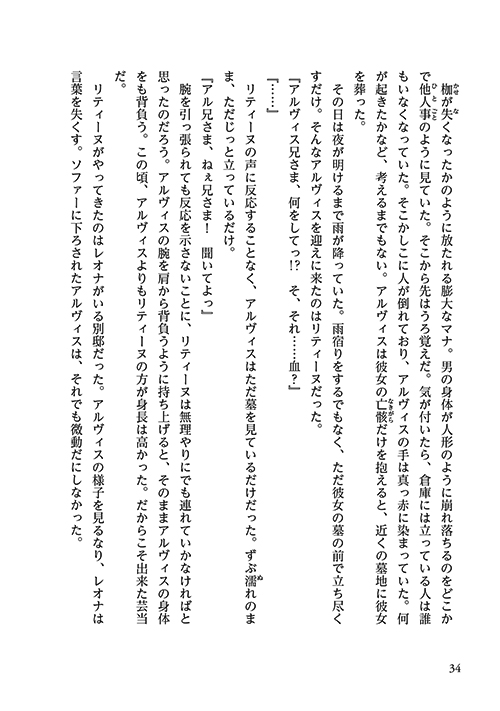 枷が失くなったかのように放たれる膨大なマナ。男の身体が人形のように崩れ落ちるのをどこか
で他人事のように見ていた。そこから先はうろ覚えだ。気が付いたら、倉庫には立っている人は誰
もいなくなっていた。そこかしこに人が倒れており、アルヴィスの手は真っ赤に染まっていた。何
が起きたかなど、考えるまでもない。アルヴィスは彼女の亡骸だけを抱えると、近くの墓地に彼女
を葬った。
その日は夜が明けるまで雨が降っていた。雨宿りをするでもなく、ただ彼女の墓の前で立ち尽く
すだけ。そんなアルヴィスを迎えに来たのはリティーヌだった。
『アルヴィス兄さま、何をしてっ!? そ、それ……血？』
『……』
リティーヌの声に反応することなく、アルヴィスはただ墓を見ているだけだった。ずぶ濡れのま
ま、ただじっと立っているだけ。
『アル兄さま、ねぇ兄さま！ 聞いてよっ』
腕を引っ張られても反応を示さないことに、リティーヌは無理やりにでも連れていかなければと
思ったのだろう。アルヴィスの腕を肩から背負うように持ち上げると、そのままアルヴィスの身体
をも背負う。この頃、アルヴィスよりもリティーヌの方が身長は高かった。だからこそ出来た芸当
だ。
リティーヌがやってきたのはレオナがいる別邸だった。アルヴィスの様子を見るなり、レオナは
言葉を失くす。ソファーに下ろされたアルヴィスは、それでも微動だにしなかった。
34